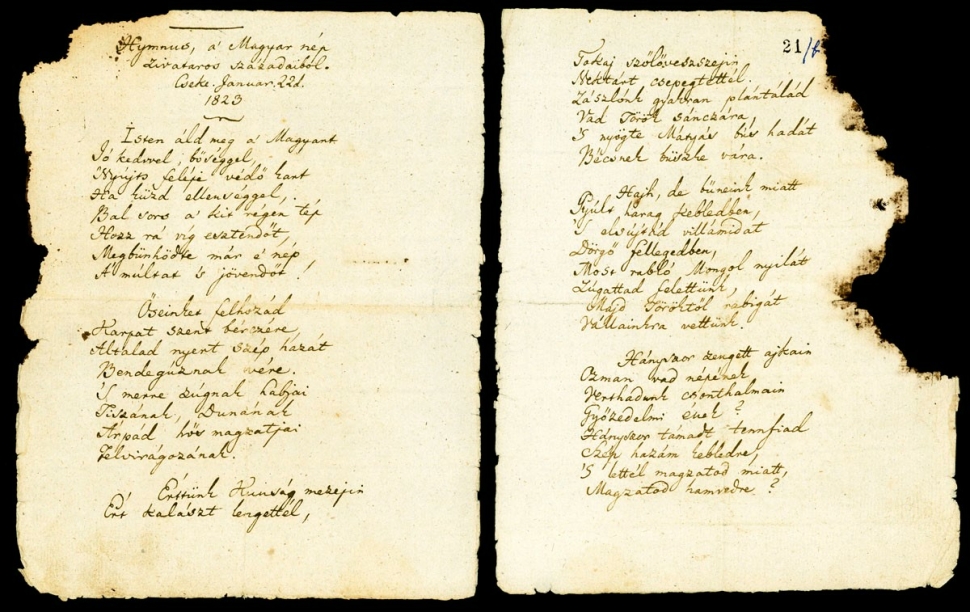 Hymnus, a' Magyar nép
zivataros századaiból.
Cseke. Januar. 22d.
1823
Isten áld meg a' Magyart
Jó kedvvel, bőséggel,
Nyújts feléje védő kart
Ha küzd ellenséggel,
Bal sors a' kit régen tép
Hozz rá víg esztendőt,
Megbünhődte már e' nép
A' múltat 's jövendőt!
Őseinket felhozád
Kárpát szent bérczére,
Általad nyert szép hazát
Bendegúznak vére.
'S merre zúgnak habjai
Tiszának, Dunának
Árpád hős magzatjai
Felvirágozának.
Értünk Kunság mezejin
Ért kalászt lengettél,
21/
Tokaj szőlővesszejin
Nektárt csepegtettél.
Zászlónk gyakran plántálád
Vad Török sánczára,
'S nyögte Mátyás bús hadát
Bécsnek büszke vára.
Hajh, de bűneink miatt
Gyúlt harag kebledben,
'S elsújtád villámidat
Dörgő fellegedben,
Most rabló Mongol nyilát
Zúgattad felettünk,
Majd Töröktől rabigát
Vállainkra vettünk.
Hányszor zengett ajkain
Ozman vad népének
Vert hadunk csonthalmain
Győzedelmi ének?
Hányszor támadt tennfiad
Szép hazám kebledre,
'S lettél magzatod miatt,
Magzatod hamvedre?